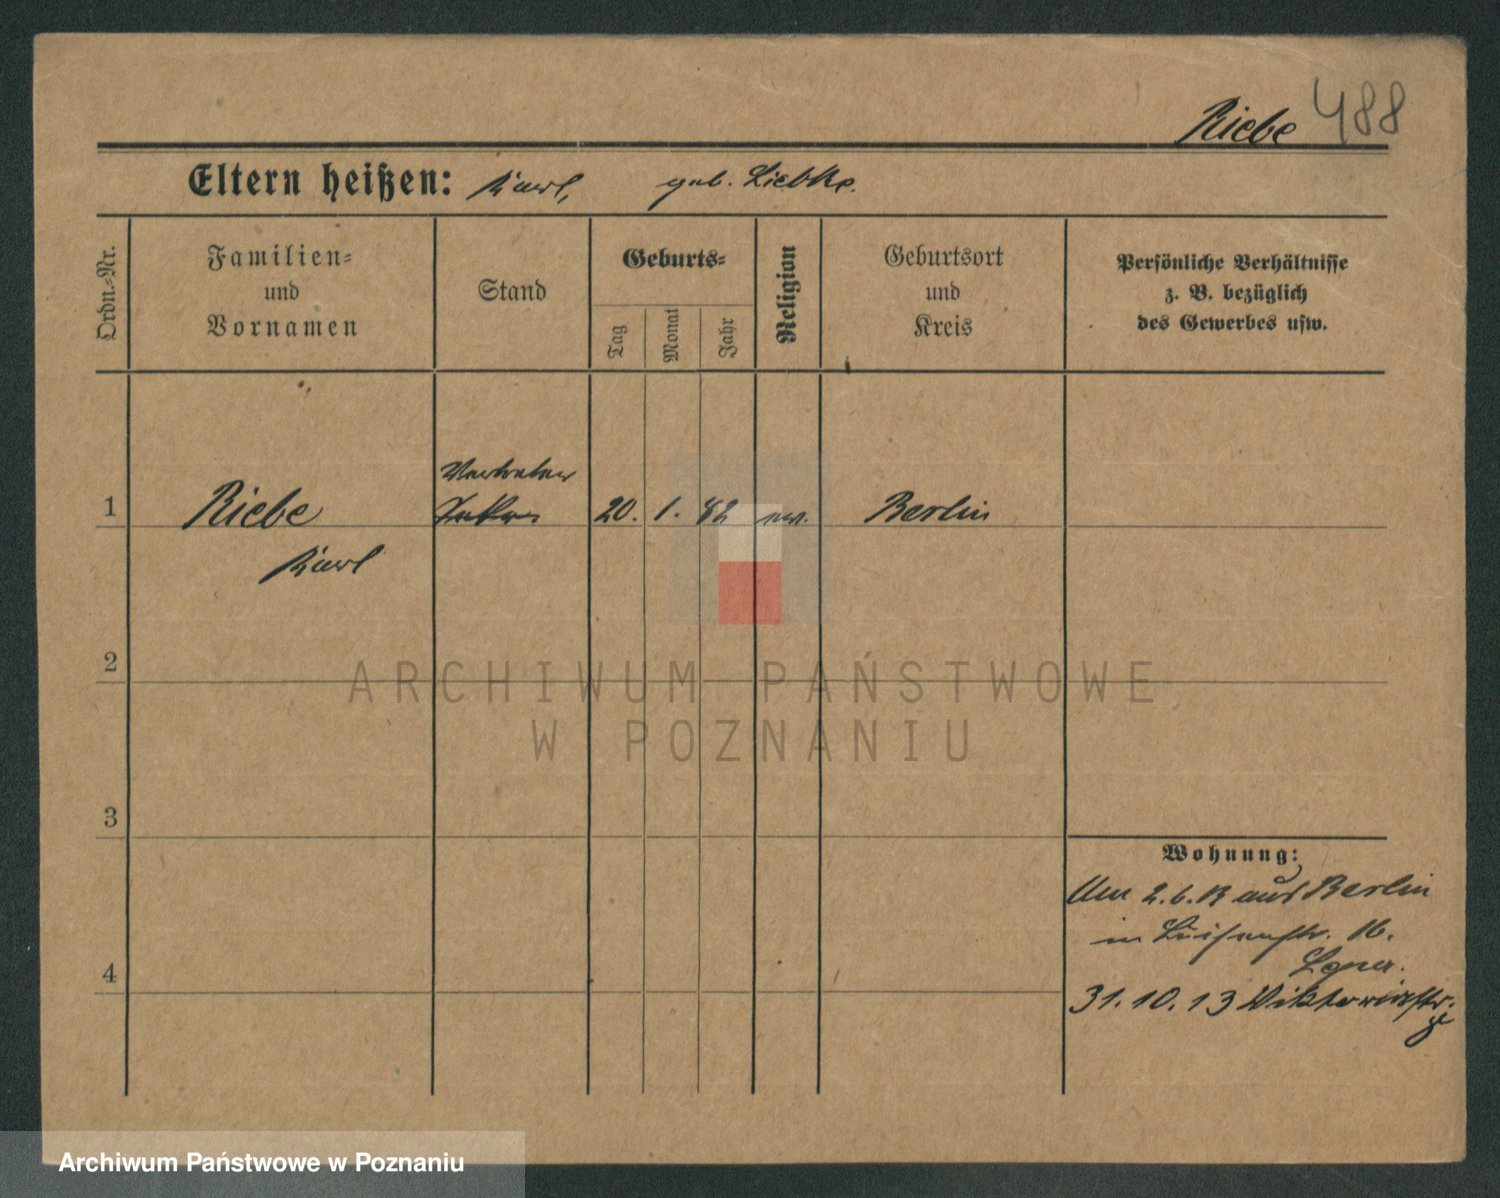 Riebe 488
Eltern heißen: Karl, geb. Liebke.
Ordn.-Nr.
Familien-
und
Vornamen
Stand
Geburts-
Tag
Monat
Jahr
Religion
Geburtsort
und
Kreis
Persönliche Verhältnisse
z. B. bezüglich
des Gewerbes usw.
Vertreter
1 Riebe 20. 1. 82 ev. Berlin
Karl
2
ARCHIWUM PAŃSTWOWE
W POZNANIU
3
Wohnung:
Am 2.6.13 aus Berlin
in Luisenstr. 16.
4
31.10.13 Viktoriastr.
Archiwum Państwowe w Poznaniu